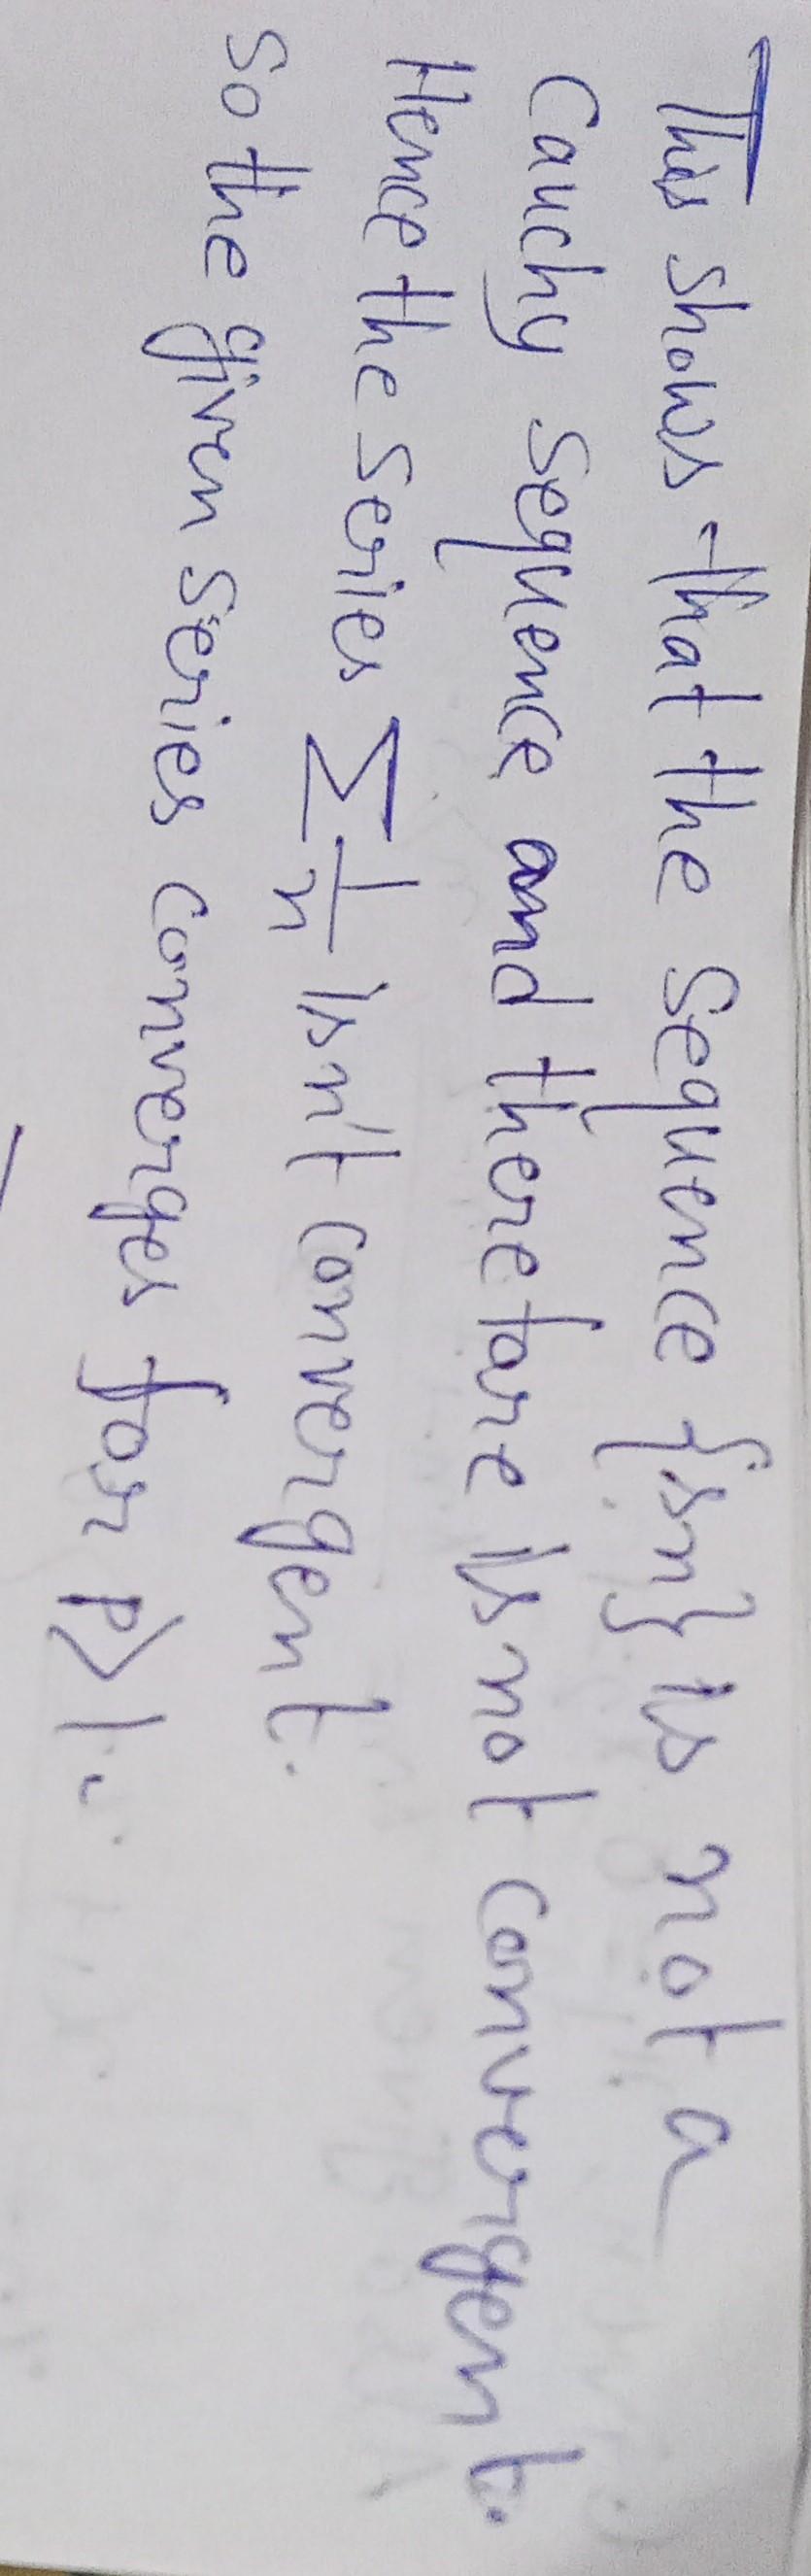 This shows that the sequence {sn} is not a
Cauchy sequence and therefore is not convergent.
Hence the series ∑ 1/n isn't convergent.
So the given series converges for P>1.